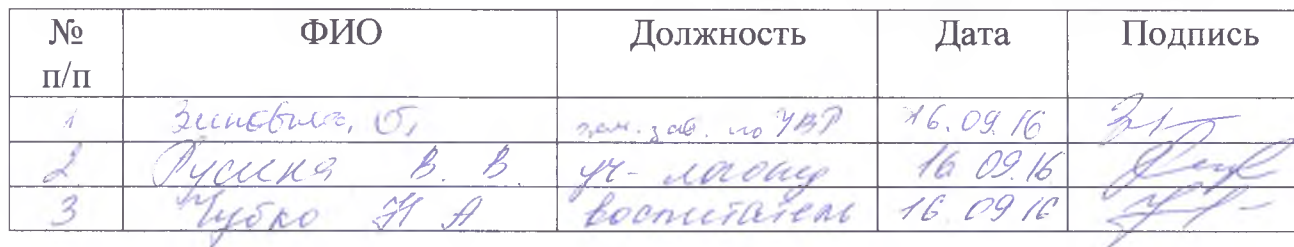 № п/п ФИО Должность Дата Подпись
1 зам. зав. по УВР 16.09.16
2 Русина В. В. уч- 16 09.16
3 Чубко Н А воспитатель 16 09 16